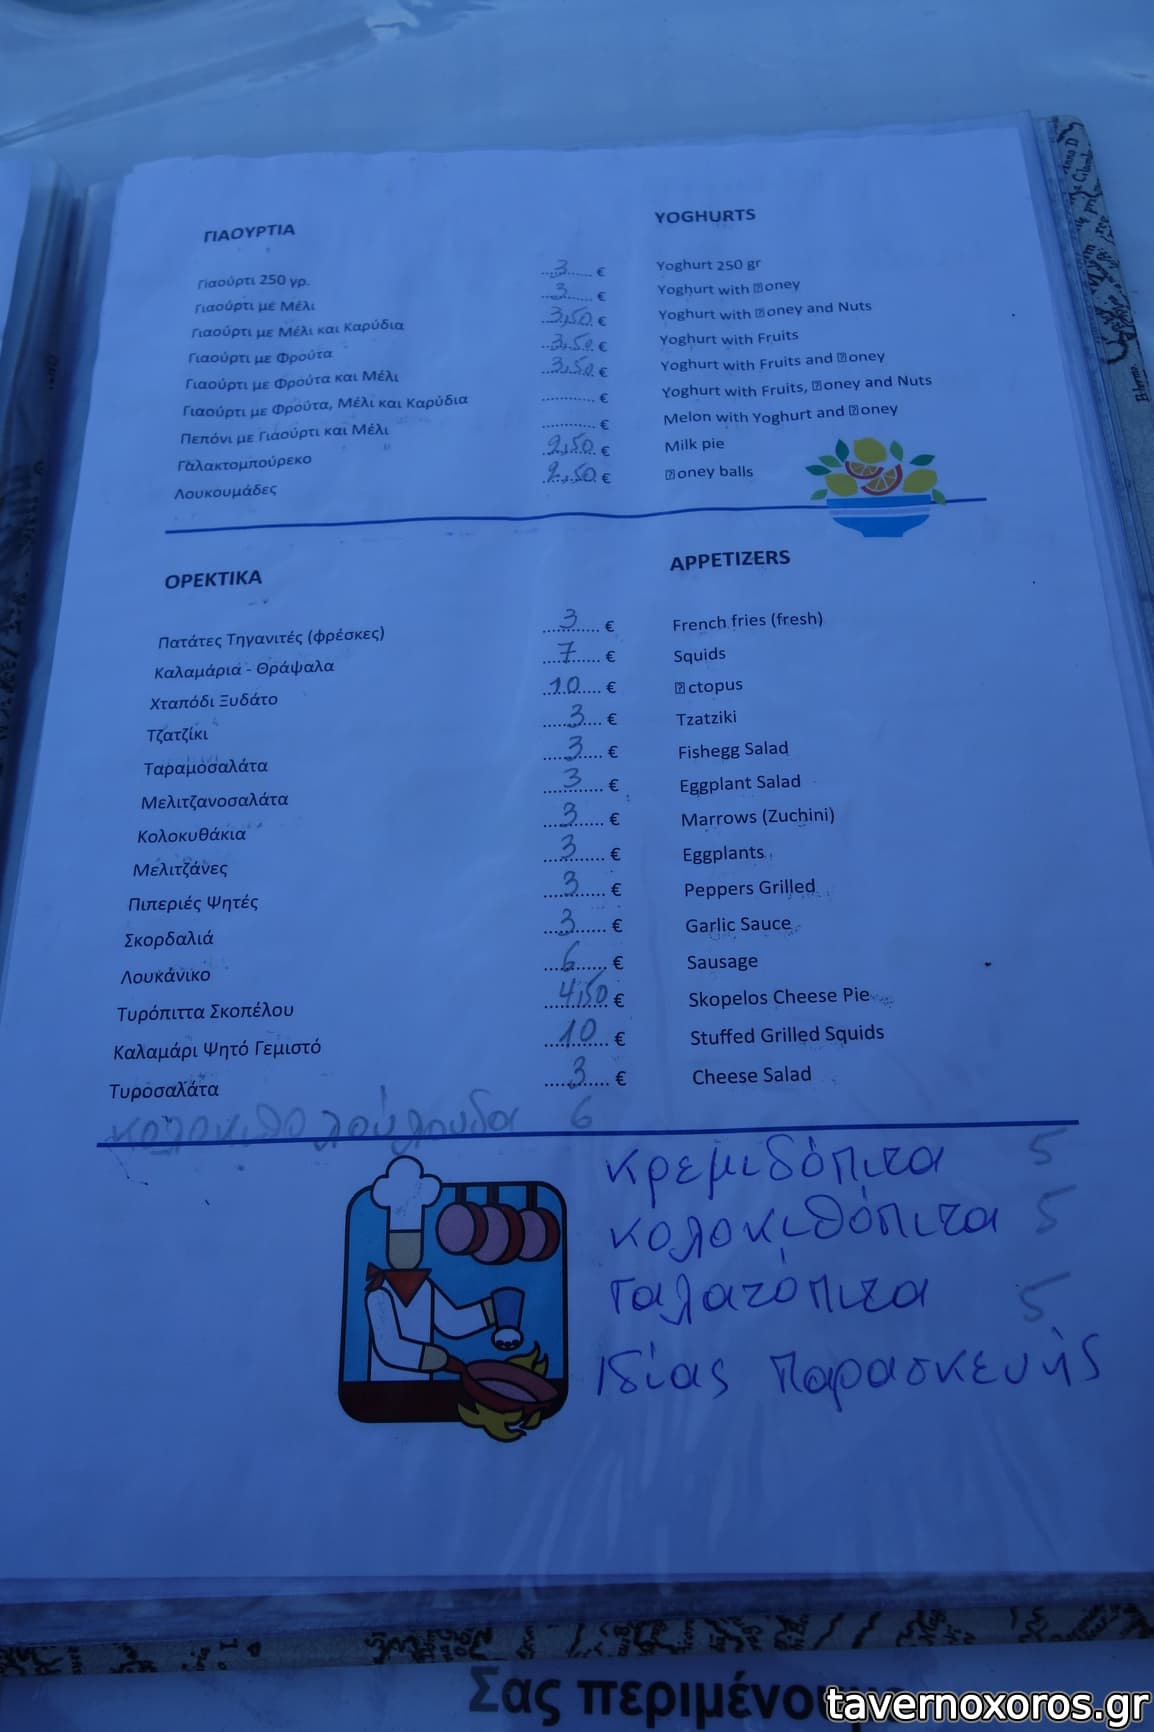 ΓΙΑΟΥΡΤΙΑ YOGHURTS
Γιαούρτι 250 γρ. ...3...... € Yoghurt 250 gr
Γιαούρτι με Μέλι ...3...... € Yoghurt with ⍰oney
Γιαούρτι με Μέλι και Καρύδια ..3,50.. € Yoghurt with ⍰oney and Nuts
Γιαούρτι με Φρούτα ..3,50.. € Yoghurt with Fruits
Γιαούρτι με Φρούτα και Μέλι ..3,50.. € Yoghurt with Fruits and ⍰oney
Γιαούρτι με Φρούτα, Μέλι και Καρύδια ............ € Yoghurt with Fruits, ⍰oney and Nuts
Πεπόνι με Γιαούρτι και Μέλι ............ € Melon with Yoghurt and ⍰oney
Γαλακτομπούρεκο ..2,50.. € Milk pie
Λουκουμάδες ..2,50.. € ⍰oney balls
ΟΡΕΚΤΙΚΑ APPETIZERS
Πατάτες Τηγανιτές (φρέσκες) 3 € French fries (fresh)
Καλαμάρια - Θράψαλα 7 € Squids
Χταπόδι Ξυδάτο 10 € ⍰ctopus
Τζατζίκι 3 € Tzatziki
Ταραμοσαλάτα 3 € Fishegg Salad
Μελιτζανοσαλάτα 3 € Eggplant Salad
Κολοκυθάκια 3 € Marrows (Zuchini)
Μελιτζάνες 3 € Eggplants
Πιπεριές Ψητές 3 € Peppers Grilled
Σκορδαλιά 3 € Garlic Sauce
Λουκάνικο 6 € Sausage
Τυρόπιττα Σκοπέλου 4,50 € Skopelos Cheese Pie
Καλαμάρι Ψητό Γεμιστό 10 € Stuffed Grilled Squids
Τυροσαλάτα 3 € Cheese Salad
κολοκιθολούλουδα 6
κρεμιδόπιτα 5
κολοκιθόπιτα 5
Γαλατόπιτα 5
Ιδίας παρασκευής
Σας περιμένουμε
tavernoxoros.gr